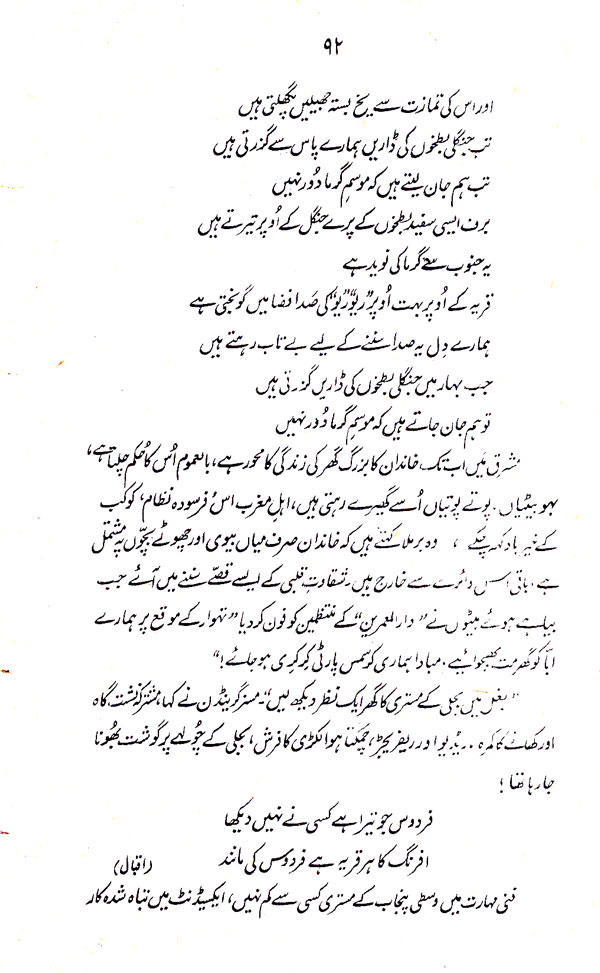 ۹۲
اور اس کی تمازت سے یخ بستہ جھیلیں پگھلتی ہیں
تب جنگلی بطخوں کی ڈاریں ہمارے پاس سے گزرتی ہیں
تب ہم جان لیتے ہیں کہ موسمِ گرما دُور نہیں
برف ایسی سفید بطخوں کے پرے جنگل کے اُوپر تیرتے ہیں
یہ جنوب سے گرما کی نوید ہے
قریہ کے اُوپر بہت اُوپر "ریوُ ریوُ" کی صَدا فضا میں گونجتی ہے
ہمارے دِل یہ صدا سننے کے لیے بے تاب رہتے ہیں
جب بہار میں جنگلی بطخوں کی ڈاریں گزرتی ہیں
تو ہم جان جاتے ہیں کہ موسمِ گرما دُور نہیں
مشرق میں اب تک خاندان کا بزرگ گھر کی زندگی کا محور ہے، بالعموم اُس کا حُکم چلتا ہے،
بہو بیٹیاں۔ پوتے پوتیاں اُسے گھیرے رہتی ہیں، اہلِ مغرب اس فرسودہ نظام، کو کب
کے خیر باد کہہ چکے، وہ برملا کہتے ہیں کہ خاندان صرف میاں بیوی اور چھوٹے بچّوں پہ مشتمل
ہے، باقی اس دائرے سے خارج ہیں۔ شقاوتِ قلبی کے ایسے قصّے سننے میں آئے جب
بیاہے ہوئے بیٹوں نے "دارالمعمرین" کے منتظمین کو فون کر دیا "تہوار کے موقع پر ہمارے
ابّا کو گھر مت بھجوائیے۔ مبادا ہماری کرسمس پارٹی کِرکِری ہو جائے!"
"بغل میں بجلی کے مستری کا گھر ایک نظر دیکھ لیں"۔ مسز گوینڈن نے کہا، مشترکہ نشست گاہ
اور کھانے کا کمرہ۔ ریڈیو اور ریفریجریٹر، چمکتا ہوا لکڑی کا فرش، بجلی کے چُولہے پر گوشت بھُونا
جا رہا تھا!
فردوس جو تیرا ہے کسی نے نہیں دیکھا
افرنگ کا ہر قریہ ہے فردوس کی مانند (اقبال)
فنی مہارت میں وسطی پنجاب کے مستری کسی سے کم نہیں، ایکسیڈنٹ میں تباہ شدہ کار